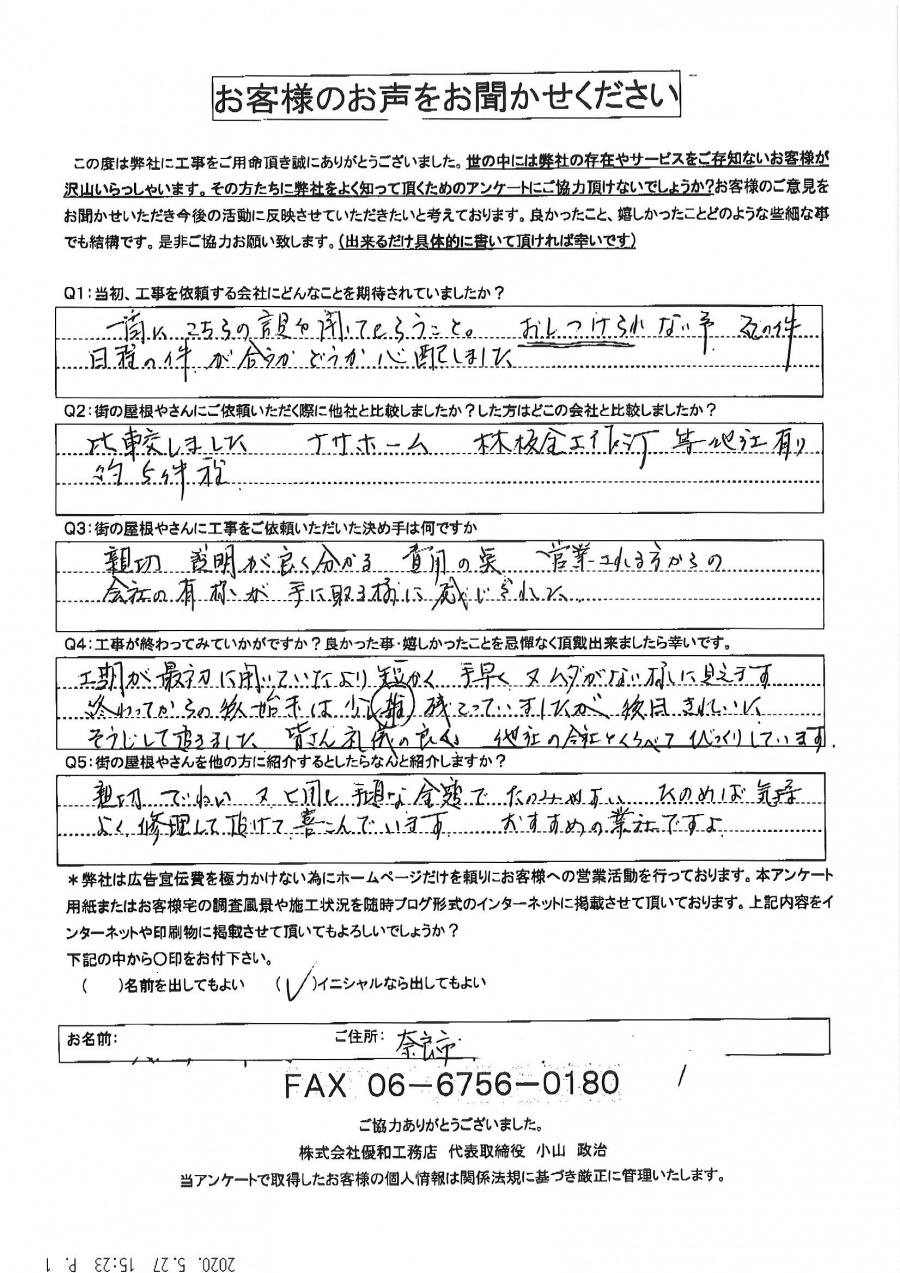 お客様のお声をお聞かせください
この度は弊社に工事をご用命頂き誠にありがとうございました。世の中には弊社の存在やサービスをご存知ないお客様が
沢山いらっしゃいます。その方たちに弊社をよく知って頂くためのアンケートにご協力頂けないでしょうか?お客様のご意見を
お聞かせいただき今後の活動に反映させていただきたいと考えております。良かったこと、嬉しかったことどのような些細な事
でも結構です。是非ご協力お願い致します。(出来るだけ具体的に書いて頂ければ幸いです)
Q1:当初、工事を依頼する会社にどんなことを期待されていましたか?
こちらの 聞いてもらうこと。 おしつけられない
日程の件 が合うかどうか心配しました
Q2:街の屋根やさんにご依頼いただく際に他社と比較しましたか?した方はどこの会社と比較しましたか?
比較しました ナサホーム 林板金工作所 等他社有り
約5件程
Q3:街の屋根やさんに工事をご依頼いただいた決め手は何ですか
親切 説明が良く分かる 費用の 営業される方からの
会社の有様が 手に取る様に 感じられた
Q4:工事が終わってみていかがですか?良かった事・嬉しかったことを忌憚なく頂戴出来ましたら幸いです。
工期が最初に聞いていたより短かく 手早く 又ムダがない様に見えます
終わってからの後始末は少し雑 残こっていましたが 後日きれいに
そうじして 皆さん礼儀の良く 他社の会社とくらべてびっくりしています
Q5:街の屋根やさんを他の方に紹介するとしたらなんと紹介しますか?
親切 でいねい 又 手頃な金額で たのみやすい たのめば気持
よく修理して頂けて喜こんでいます おすすめの業社ですよ
*弊社は広告宣伝費を極力かけない為にホームページだけを頼りにお客様への営業活動を行っております。本アンケート
用紙またはお客様宅の調査風景や施工状況を随時ブログ形式のインターネットに掲載させて頂いております。上記内容をイ
ンターネットや印刷物に掲載させて頂いてもよろしいでしょうか?
下記の中から〇印をお付下さい。
( )名前を出してもよい (✓)イニシャルなら出してもよい
お名前: ご住所: 奈良市
FAX 06-6756-0180
ご協力ありがとうございました。
株式会社優和工務店 代表取締役 小山 政治
当アンケートで取得したお客様の個人情報は関係法規に基づき厳正に管理いたします。
2020. 5.27 15:23 P. 1